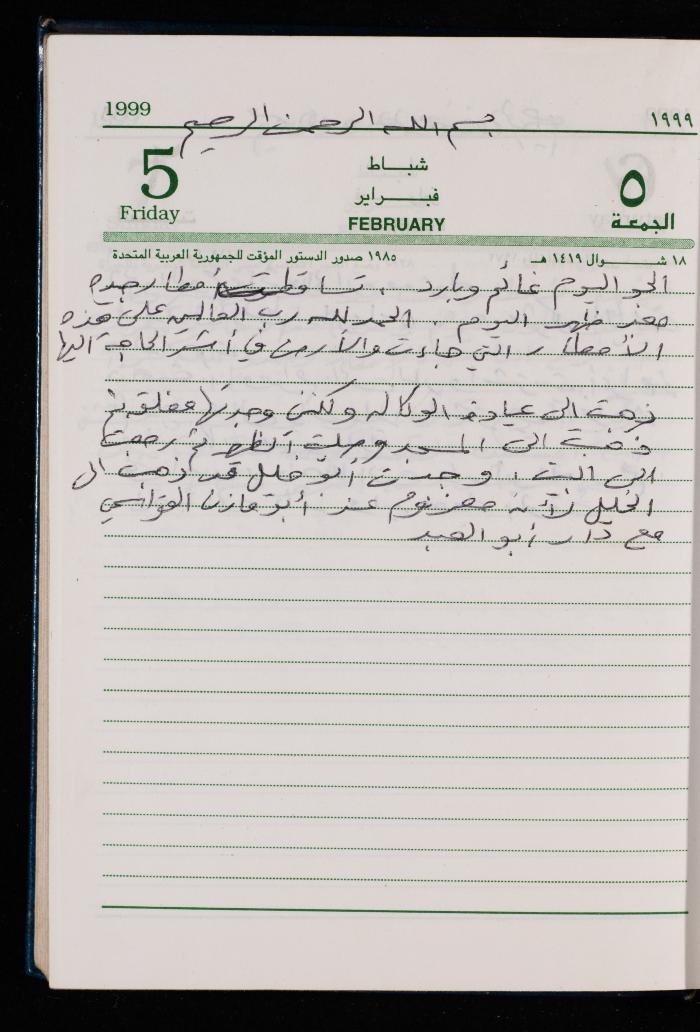 1999 بسم الله الرحمن الرحيم ١٩٩٩
5 شباط ٥
Friday فبراير الجمعة
FEBRUARY
١٨ شوال ١٤١٩ هـ ١٩٨٥ صدور الدستور المؤقت للجمهورية العربية المتحدة
الجو اليوم غائم وبارد . تساقطت أمطار جيده
ظهر اليوم . الحمد لله رب العالمين على هذه
الأمطار التي جاءت والأرض في أشد الحاجه اليها
ذهبت الى عيادة الوكاله ولكنني وجدتها مغلقه ثم
ذهبت الى المسجد وصليت الظهر ثم رجعت
الى البيت ، وجدت أبو خليل قد ذهب الى
الخليل لأنه معزوم عند أبو مازن القواسمي
مع دار أبو العبد